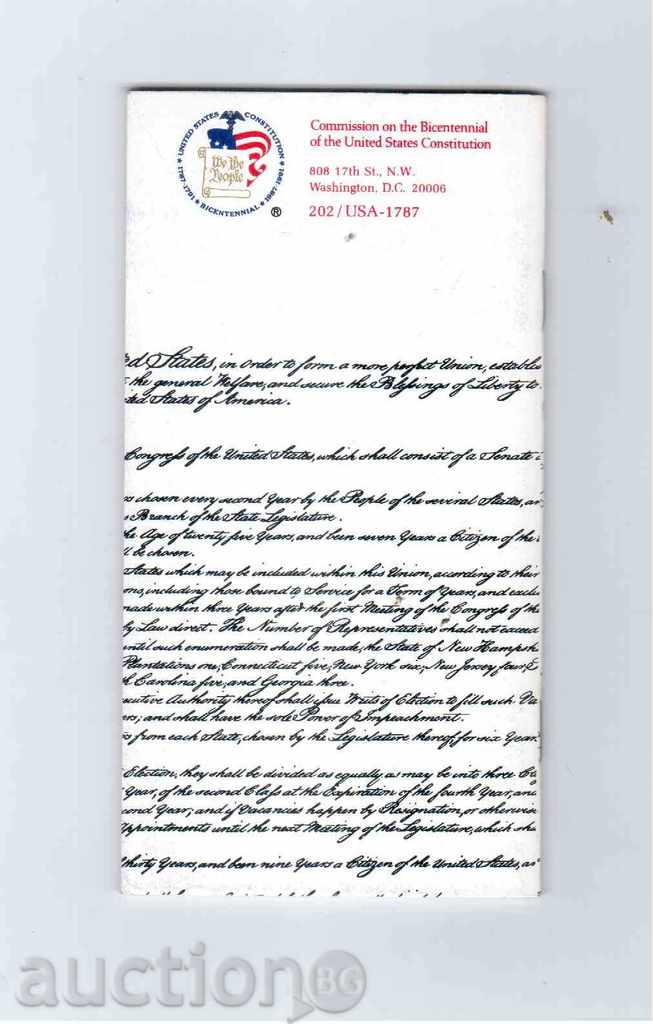 UNITED STATES CONSTITUTION
1787-1791 ★ BICENTENNIAL ★ 1987-1991
We the
People
®
Commission on the Bicentennial
of the United States Constitution
808 17th St., N.W.
Washington, D.C. 20006
202/USA-1787
ed States, in order to form a more perfect Union, establis
the general Welfare, and secure the Blessings of Liberty to
ted States of America.
Congress of the United States, which shall consist of a Senate
chosen every second Year by the People of the several States, an
Branch of the State Legislature.
he Age of twenty five Years, and been seven Years a Citizen of the
ll be chosen.
States which may be included within this Union, according to their
ons, including those bound to Service for a Term of Years, and exclu
made within three Years after the first Meeting of the Congress of the
by Law direct. The Number of Representatives shall not exceed
until such enumeration shall be made, the State of New Hampsh
Plantations one, Connecticut five, New York six, New Jersey four,
h Carolina five, and Georgia three.
ecutive Authority thereof shall issue Writs of Election to fill such Va
ers; and shall have the sole Power of Impeachment.
s from each State, chosen by the Legislature thereof, for six Year
Election, they shall be divided as equally as may be into three Cl
Year, of the second Class at the Expiration of the fourth Year, an
cond Year; and if Vacancies happen by Resignation, or otherwis
Appointments until the next Meeting of the Legislature, which sha
thirty Years, and been nine Years a Citizen of the United States, a
auction BG